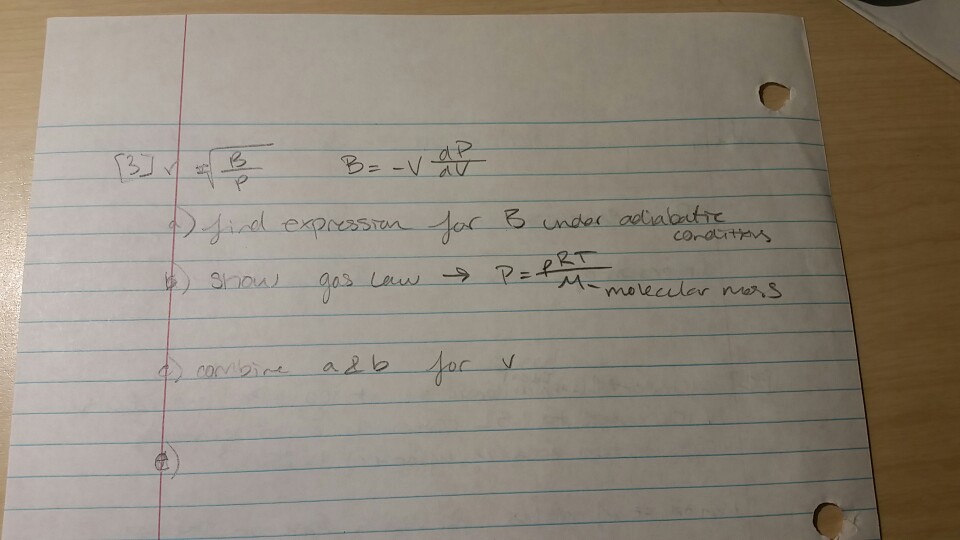 [3] v = √(B/ρ) B = -V dP/dV
a) find expression for B under adiabatic conditions
b) show gas law → P = ρRT/M - molecular mass
c) combine a & b for v